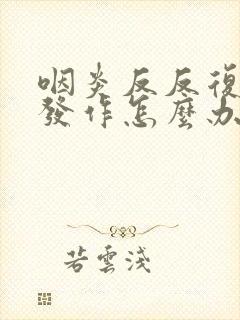 咽炎反反復
發作怎麼办
若雲淺